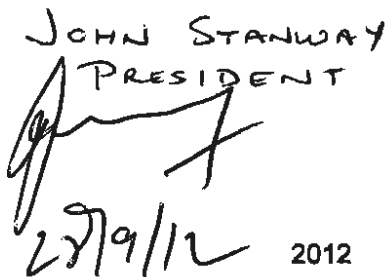 JOHN STANWAY
PRESIDENT
28/9/12 2012